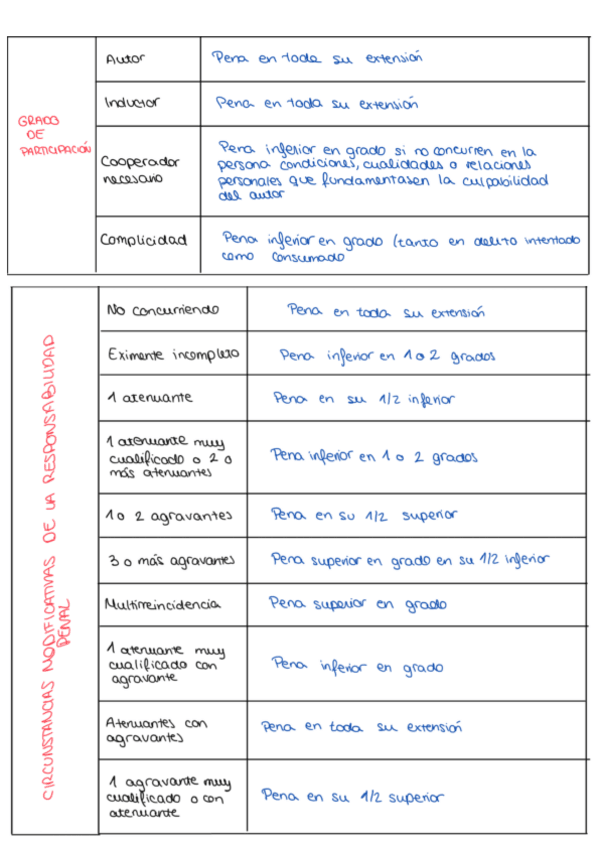 GRADO
DE
PARTICIPACIÓN
Autor
Pena en toda su extensión
Inductor
Pena en toda su extensión
Cooperador
necesario
Pena inferior en grado si no concurren en la
persona condiciones, cualidades o relaciones
personales que fundamentasen la culpabilidad
del autor
Complicidad
Pena inferior en grado (tanto en delito intentado
como consumado
CIRCUNSTANCIAS MODIFICATIVAS DE LA RESPONSABILIDAD
PENAL
No concurriendo
Pena en toda su extensión
Eximente incompleto
Pena inferior en 1 o 2 grados
1 atenuante
Pena en su 1/2 inferior
1 atenuante muy
cualificado o 2 o
más atenuantes
Pena inferior en 1 o 2 grados
1 o 2 agravantes
Pena en su 1/2 superior
3 o más agravantes
Pena superior en grado en su 1/2 inferior
Multirreincidencia
Pena superior en grado
1 atenuante muy
cualificado con
agravante
Pena inferior en grado
Atenuantes con
agravantes
Pena en toda su extensión
1 agravante muy
cualificado o con
atenuante
Pena en su 1/2 superior